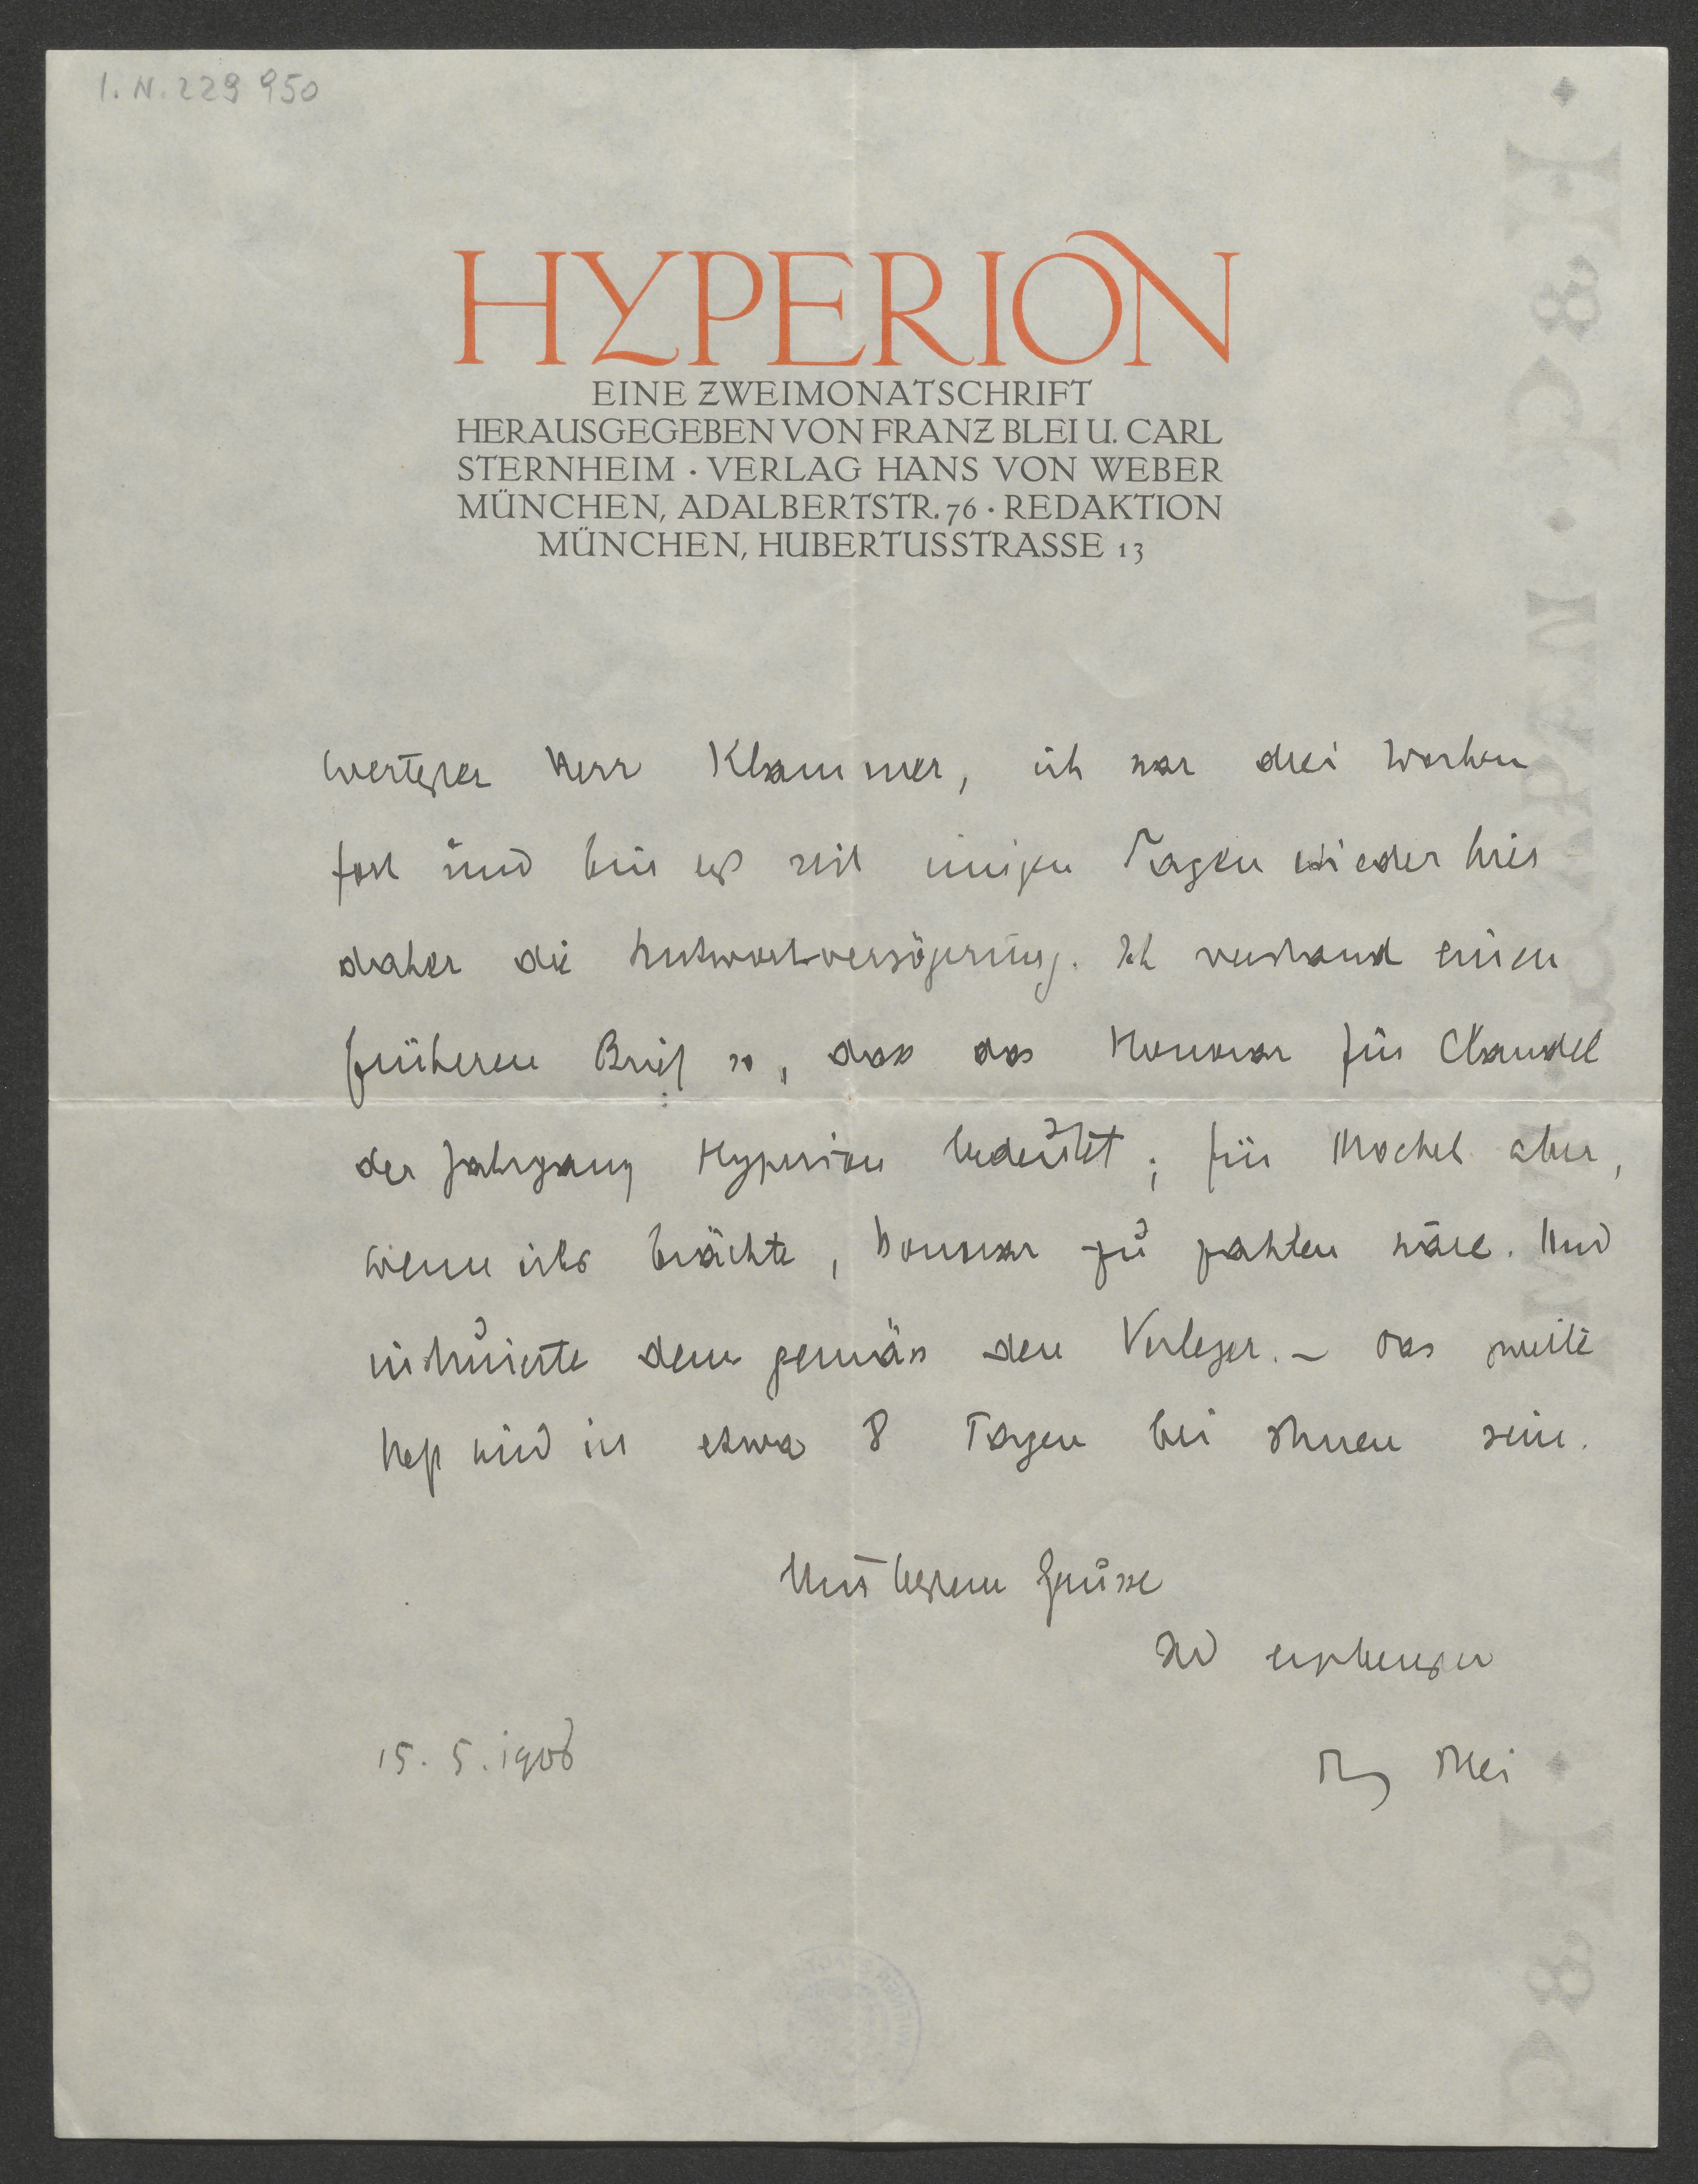 I. N. 229 950
HYPERION
EINE ZWEIMONATSCHRIFT
HERAUSGEGEBEN VON FRANZ BLEI U. CARL
STERNHEIM · VERLAG HANS VON WEBER
MÜNCHEN, ADALBERTSTR. 76 · REDAKTION
MÜNCHEN, HUBERTUSSTRASSE 13
Wertester Herr Klammer, ich war drei Wochen
fort und bin erst seit einigen Tagen wieder hier
daher die Antwortverzögerung. Ich verstand einen
früheren Brief so, dass das Honorar für Claudel
der Jahrgang Hyperion bedeutet; für Mockel aber,
wenn ichs brächte, Honorar zu zahlen wäre. Und
instruierte dem gemäss den Verleger. – Das zweite
Heft wird in etwa 8 Tagen bei Ihnen sein.
Mit bestem Grusse
Ihr ergebenster
15. 5. 1908
Franz Blei